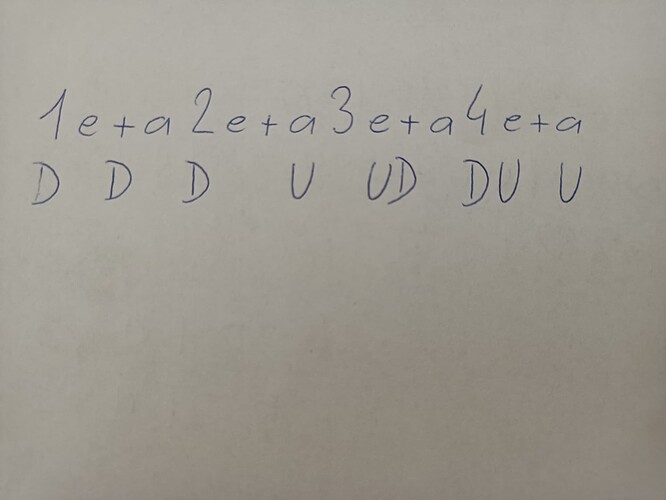 1 e + a 2 e + a 3 e + a 4 e + a
D D D U UD DU U